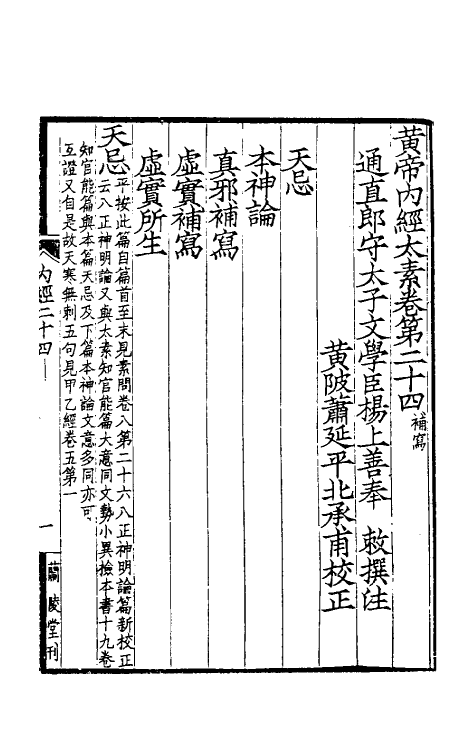 黃帝內經太素卷第二十四補寫
通直郎守太子文學臣揚上善奉　敕撰注
黃陂蕭延平北承甫校正
天忌
本神論
真邪補寫
虛實補寫
虛實所生
天忌平按此篇自篇首至末見素問卷八第二十六八正神明論篇新校正
云八正神明論又與太素知官能篇大意同文勢小異檢本書十九卷
知官能篇與本篇天忌及下篇本神論文意多同亦可
互證又自是故天寒無刺五句見甲乙經卷五第一
內經二十四
一
蘭陵堂刊